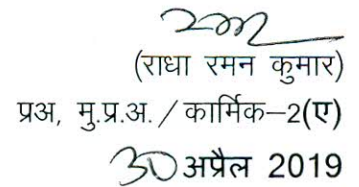 (राधा रमन कुमार)
प्रअ, मु.प्र.अ. / कार्मिक–2(ए)
30 अप्रैल 2019